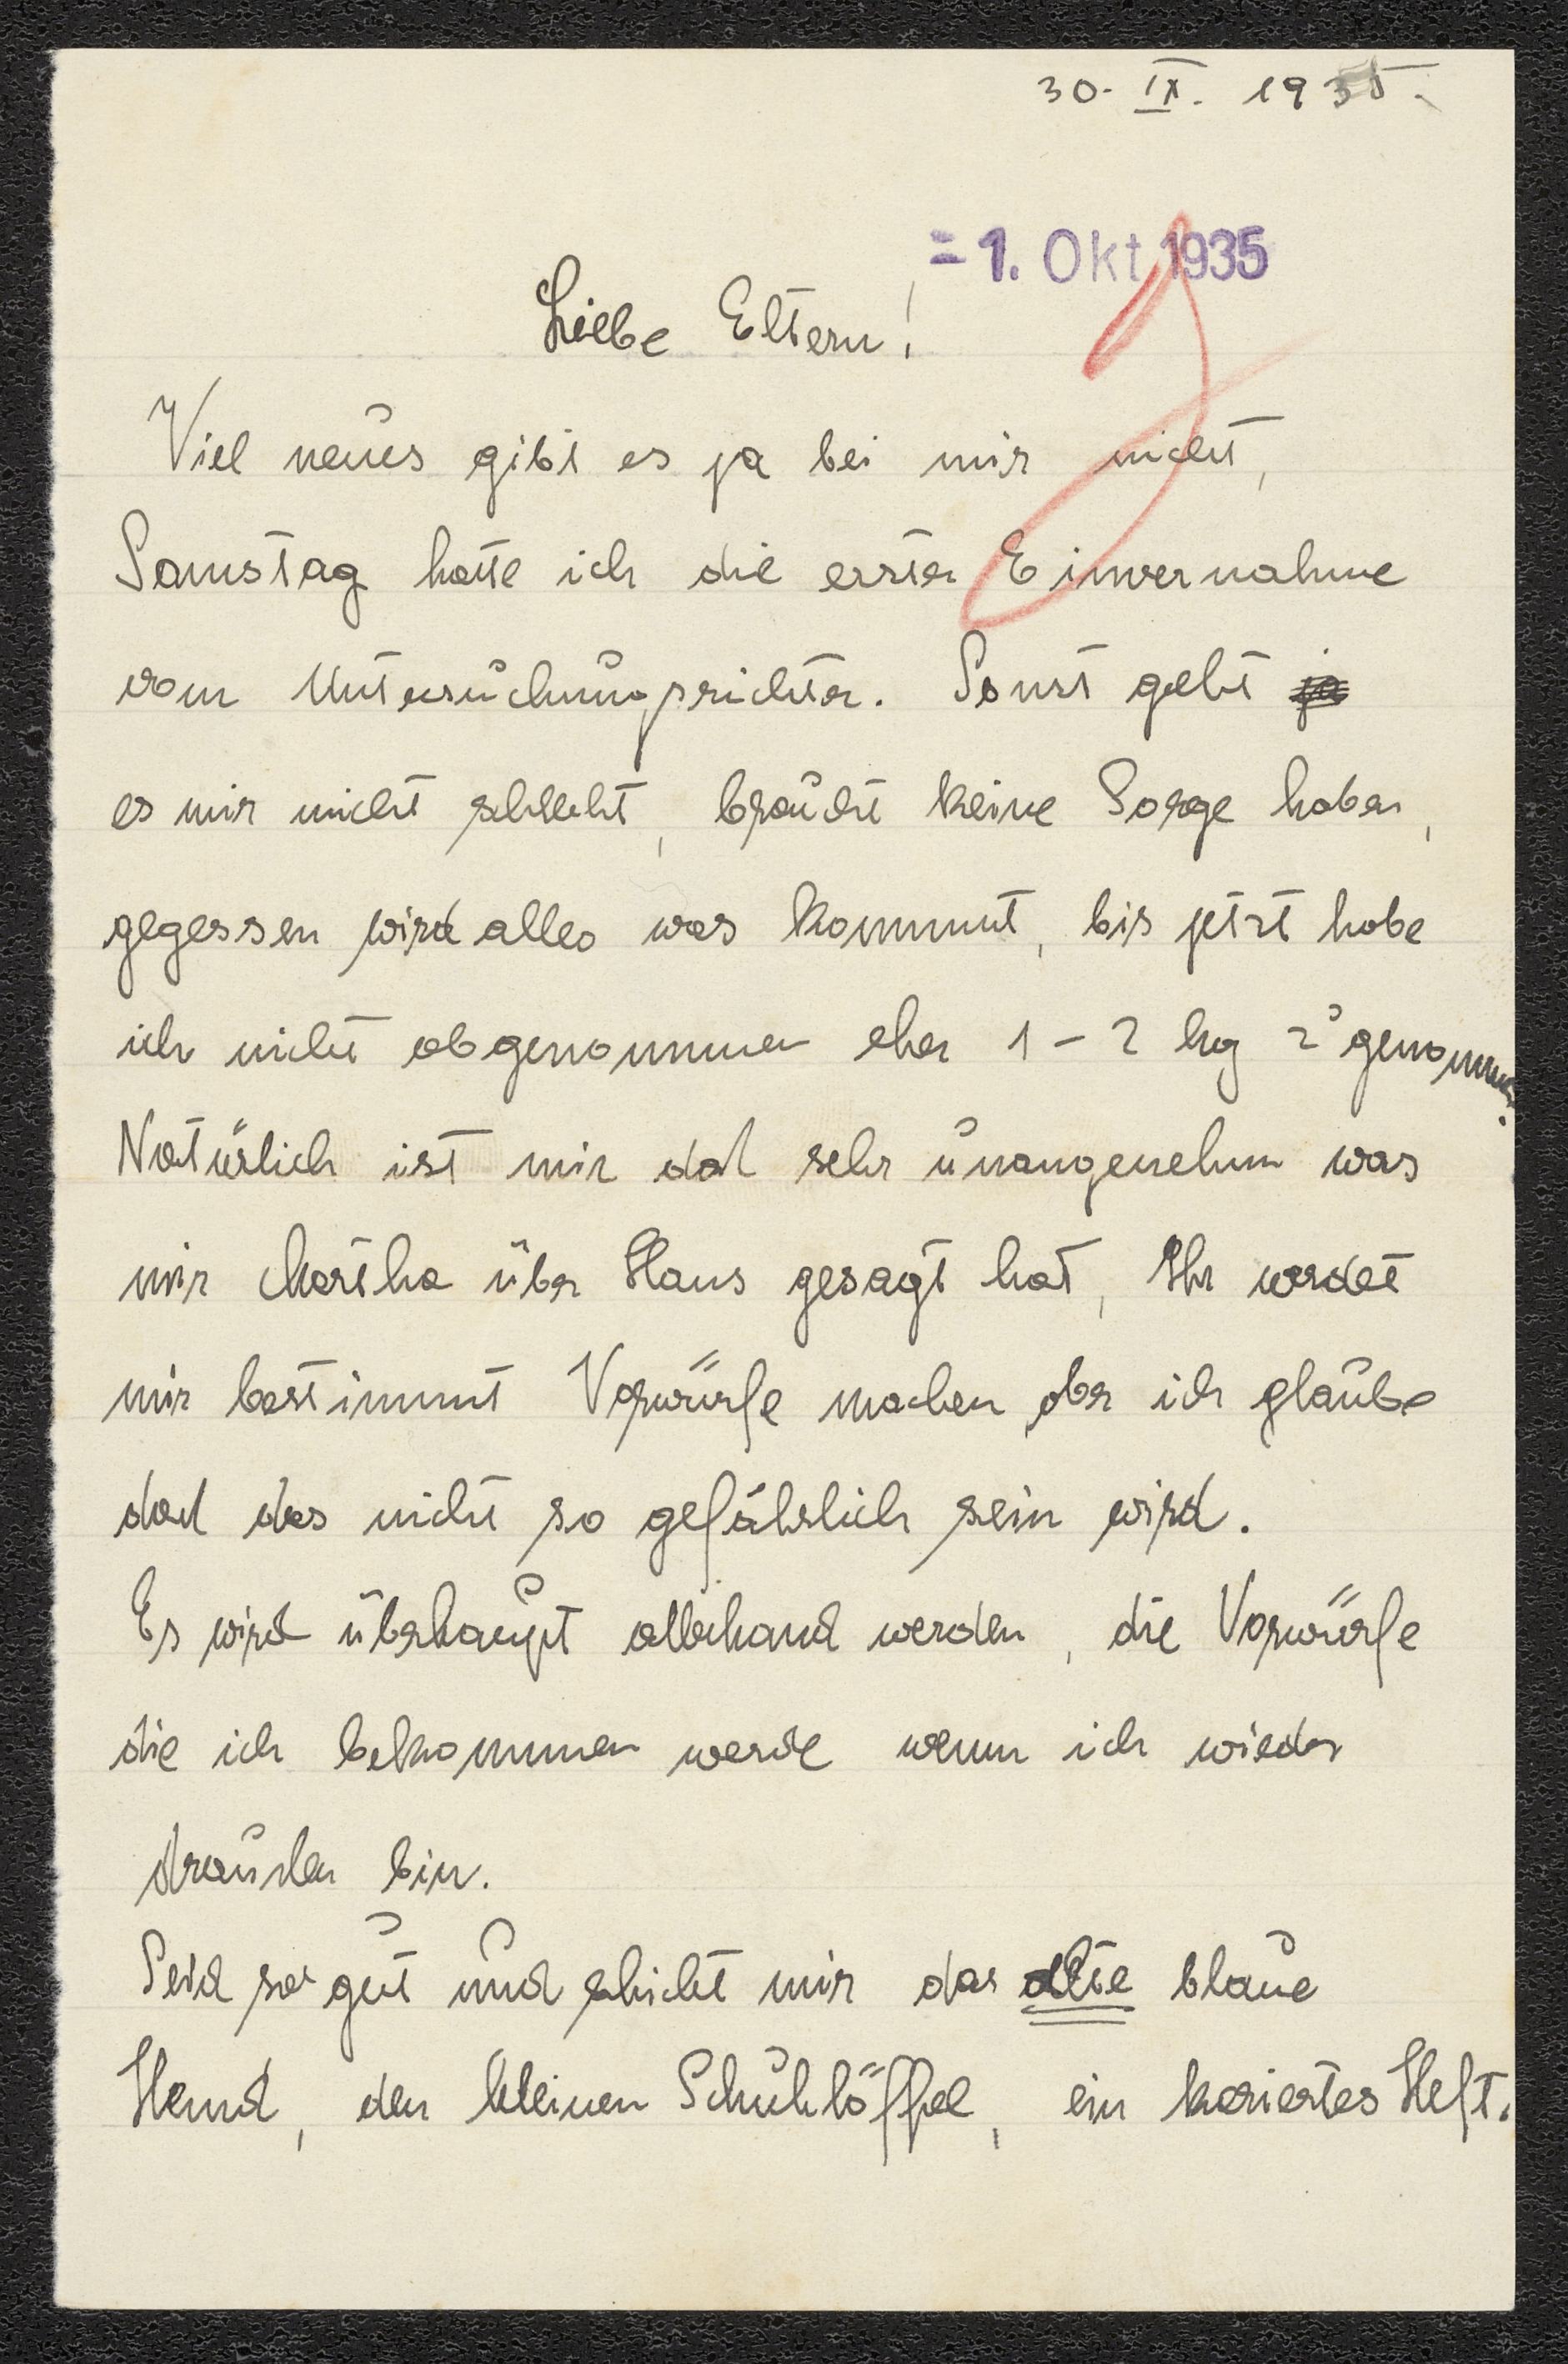 30. IX. 1935.
- 1. Okt 1935
Liebe Eltern!
Viel neues gibt es ja bei mir nicht,
Samstag hatte ich die erste Einvernahme
vom Untersuchungsrichter. Sonst geht ja
es mir nicht schlecht, braucht keine Sorge haben,
gegessen wird alles was kommt, bis jetzt habe
ich nicht abgenommen eher 1 – 2 kg zugenommen.
Natürlich ist mir daß sehr unangenehm was
mir Martha über Hans gesagt hat, Ihr werdet
mir bestimmt Vorwürfe machen, aber ich glaube
daß das nicht so gefährlich sein wird.
Es wird überhaupt allerhand werden, die Vorwürfe
die ich bekommen werde wenn ich wieder
draußen bin.
Seid so gut und schickt mir das alte blaue
Hemd, den kleinen Schuhlöffel, ein kariertes Heft.